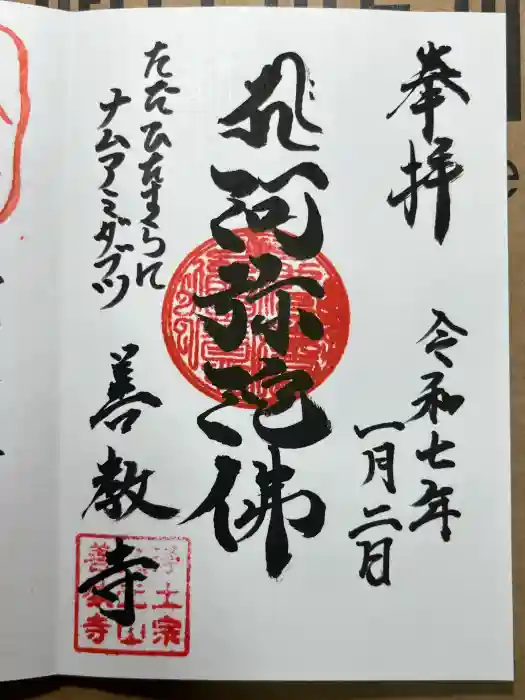 奉拝
令和七年
一月二日
阿弥陀佛
ただひたすらに
ナムアミダブツ
善教寺
浄土宗
山
善教寺